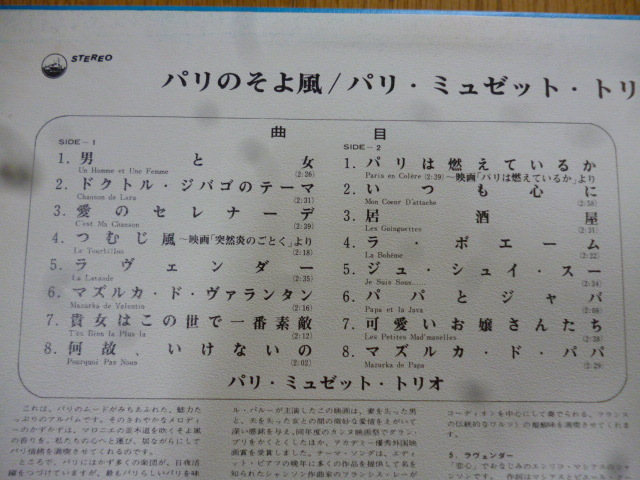 STEREO
パリのそよ風/パリ・ミュゼット・トリ
曲目
SIDE-1
1. 男と女
Un Homme et Une Femme (2:26)
2. ドクトル・ジバゴのテーマ
Chanson de Lara (2:31)
3. 愛のセレナーデ
C'est Ma Chanson (2:39)
4. つむじ風〜映画「突然炎のごとく」より
Le Tourbillon (2:18)
5. ラヴェンダー
La Lavande (2:35)
6. マズルカ・ド・ヴァランタン
Mazurka de Valentin (2:16)
7. 貴女はこの世で一番素敵
T'es Bien la Plus la (2:12)
8. 何故、いけないの
Pourquoi Pas Nous (2:02)
SIDE-2
1. パリは燃えているか
Paris en Colère (2:39)〜映画「パリは燃えているか」より
2. いつも心に
Mon Coeur D'attache (2:58)
3. 居酒屋
Les Guinguettes (2:31)
4. ラ・ボエーム
La Bohême (2:22)
5. ジュ・シュイ・スー
Je Suis Sous... (2:34)
6. パパとジャバ
Papa et la Java
7. 可愛いお嬢さんたち
Les Petites Mad'maselles (2:28)
8. マズルカ・ド・パパ
Mazurka de Papa (2:29)
パリ・ミュゼット・トリオ
これは、パリのムードがみちあふれた、魅力た
っぷりのアルバムです。そのさわやかなメロディ
ーのかずかずは、マロニエの並木道を吹くそよ風
の香りを、私たちの心へと運び、居ながらにして
パリ情緒を満喫させてくれるのです。
ところで、パリにはかず多くの楽団が、日夜活
躍をつづけていますが、最もパリらしいパリを味
ル・バルーが主演したこの映画は、妻を失った男
と、夫を失った女との間の微妙な愛情をえがいて
深い感銘を与え、同年度のカンヌ映画祭でグラン・
プリをかくとくしたほか、アカデミー優秀外国映
画賞を受賞しました。テーマ・ソングは、エディ
ット・ピアフの晩年に多くの作品を提供して名を
知られたシャンソン作曲家のフランシス・レーが
コーディオンを中心にして奏でられる、フランス
の伝統的なワルツ）の醍醐味を満喫させてくれま
す。
5. ラヴェンダー
「恋心」でおなじみのエンリコ・マシアスのシャ
ンソンです。作詞はマシアスとピエール・